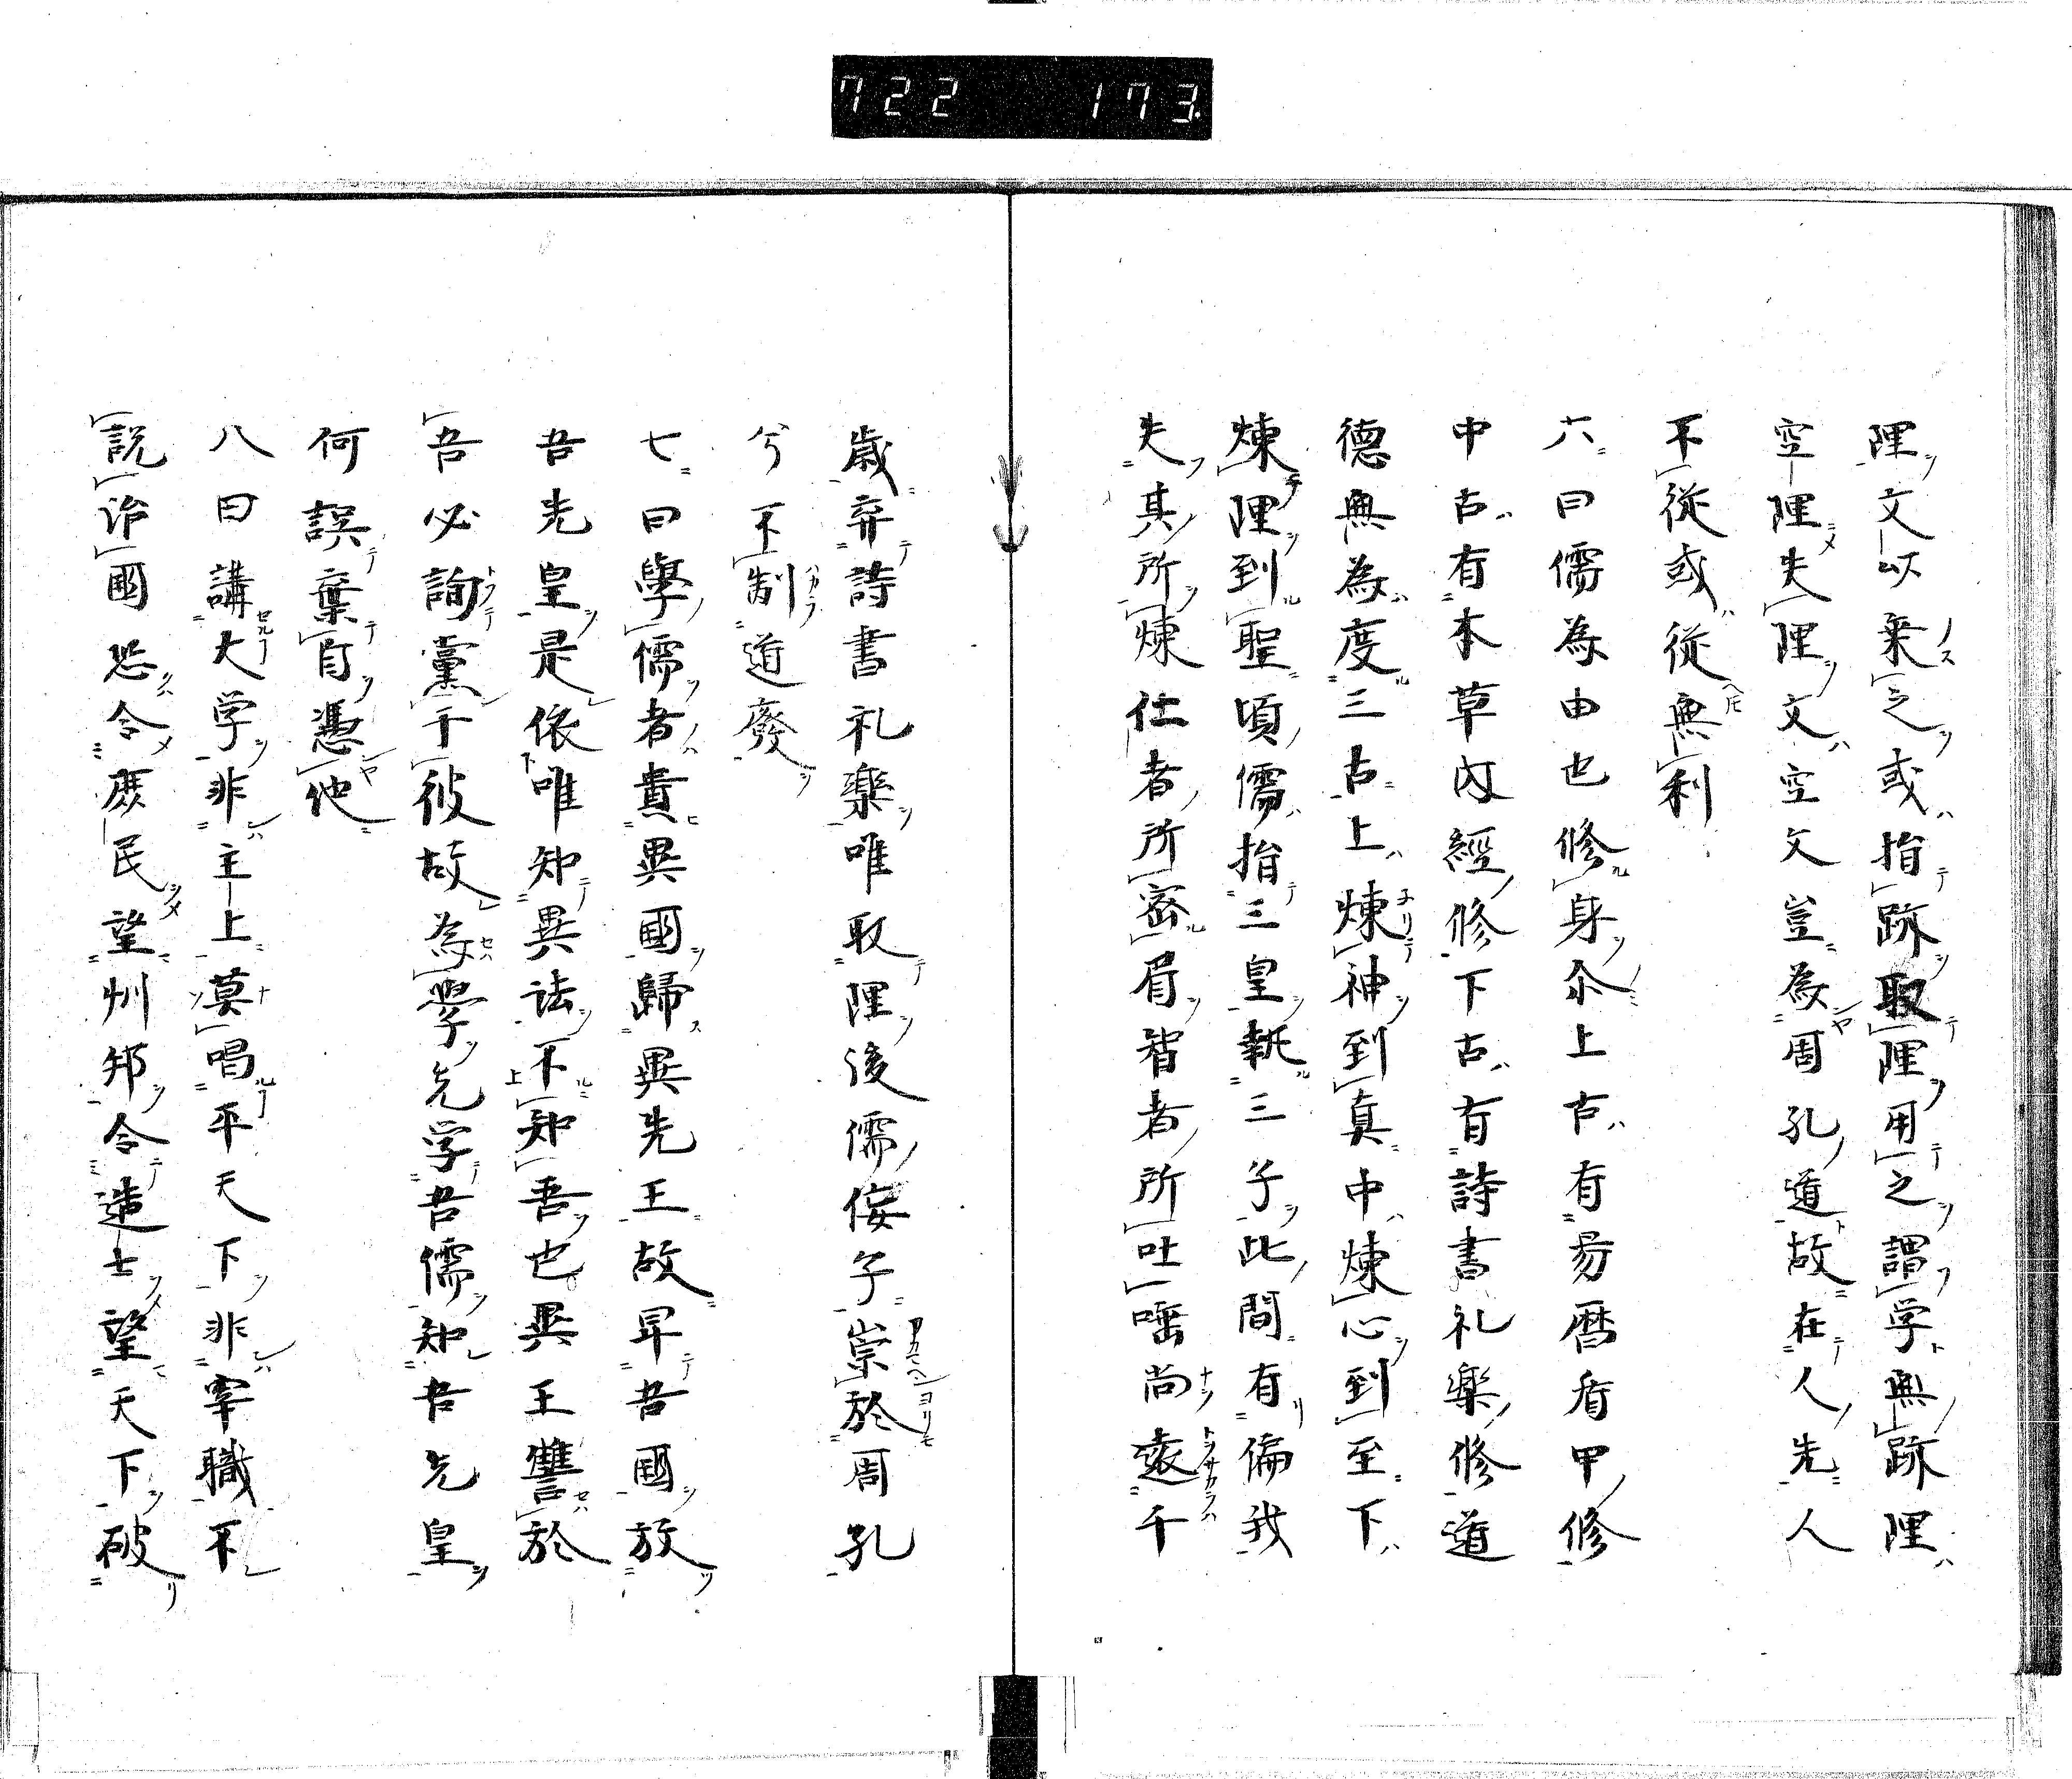 722 173
陻文以乗之或指跡取陻用之謂学無跡陻
空陻失陻文空文豈為周孔道故在人先人
不從或從無利
六曰儒為由也修身尒上古有易暦看甲修
中古有本草内經修下古有詩書礼楽修道
德無為度三古上煉神到真中煉心到至下
煉陻到聖頃儒指三皇執三子此間有偏我
失其所煉仁者所密眉智者所吐唾尚遠千
歳弃詩書礼楽唯取陻後儒侫子崇於周孔
兮不制道廢
七曰學儒者貴異國歸異先王故早吾國放
吾先皇是依唯知異法不知吾也異王讐於
吾必詢黨于彼故為學先学吾儒知吾先皇
何誤棄自憑他
八曰講大学非主上莫唱平天下非宰職不
説治國恐令庶民望州邦令造士望天下破